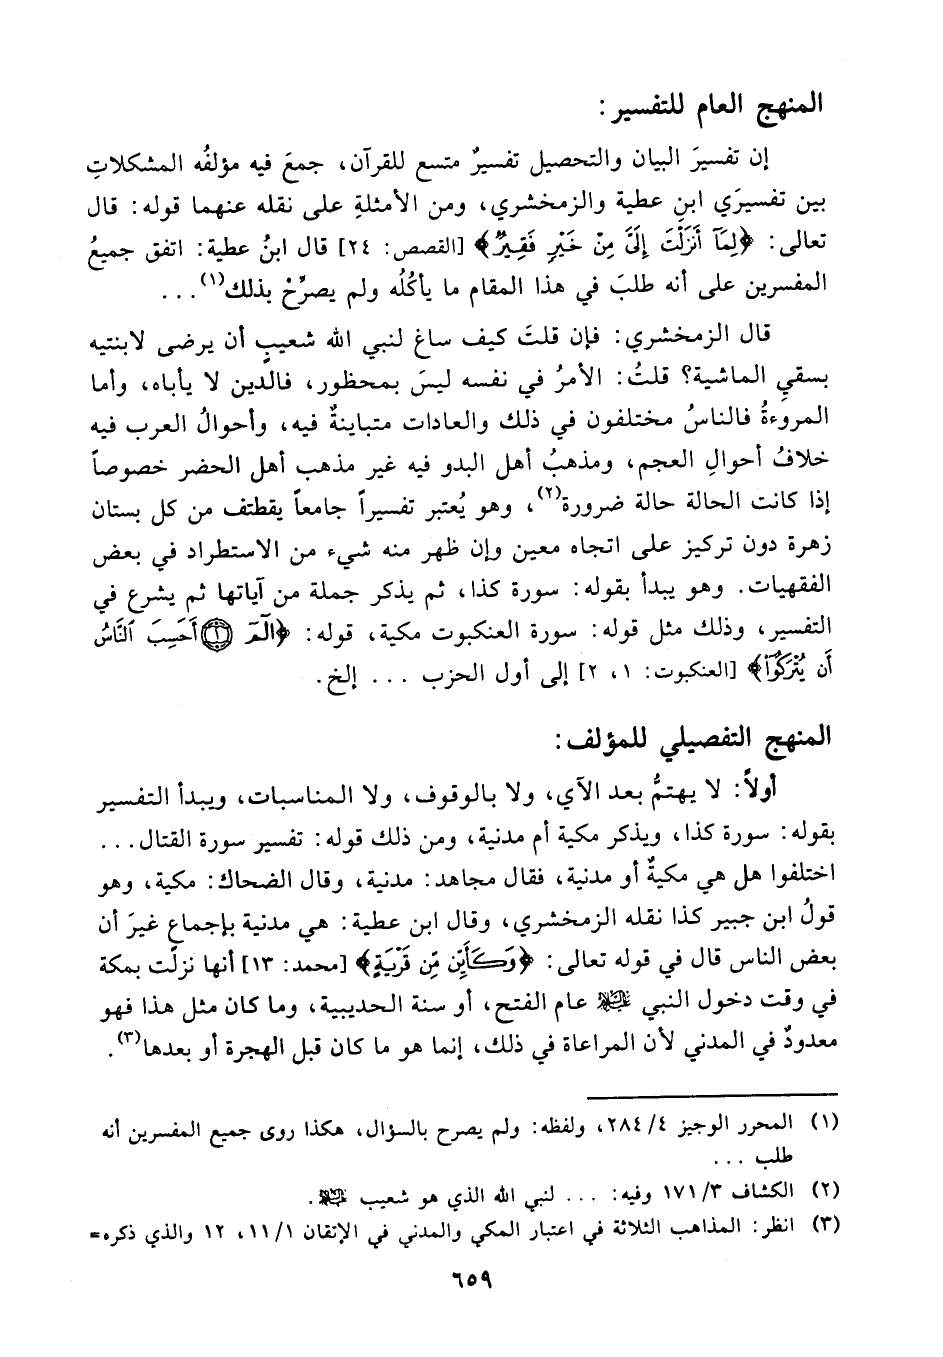 المنهج العام للتفسير :
إن تفسيرَ البيان والتحصيل تفسيرٌ متسع للقرآن، جمعَ فيه مؤلفُه المشكلاتِ
بين تفسيرَي ابنِ عطية والزمخشري، ومن الأمثلةِ على نقله عنهما قوله: قال
تعالى: ﴿لِمَآ أَنزَلْتَ إِلَىَّ مِنْ خَيْرٍ فَقِيرٌ﴾ [القصص: ٢٤] قال ابنُ عطية: اتفق جميعُ
المفسرين على أنه طلبَ في هذا المقام ما يأكُلُه ولم يصرِّحْ بذلك(١)...
قال الزمخشري: فإن قلتَ كيف ساغ لنبي الله شعيبٍ أن يرضى لابنتيه
بسقيِ الماشية؟ قلتُ: الأمرُ في نفسه ليسَ بمحظور، فالدين لا يأباه، وأما
المروءةُ فالناسُ مختلفون في ذلك والعادات متباينةٌ فيه، وأحوالُ العرب فيه
خلافُ أحوالِ العجم، ومذهبُ أهل البدو فيه غير مذهب أهل الحضر خصوصاً
إذا كانت الحالة حالة ضرورة(٢)، وهو يُعتبر تفسيراً جامعاً يقطتف من كل بستان
زهرة دون تركيز على اتجاه معين وإن ظهر منه شيء من الاستطراد في بعض
الفقهيات. وهو يبدأ بقوله: سورة كذا، ثم يذكر جملة من آياتها ثم يشرع في
التفسير، وذلك مثل قوله: سورة العنكبوت مكية، قوله: ﴿الٓمٓ ١ أَحَسِبَ ٱلنَّاسُ
أَن يُتْرَكُوٓا﴾ [العنكبوت: ١، ٢] إلى أول الحزب ... إلخ.
المنهج التفصيلي للمؤلف:
أولاً: لا يهتمُّ بعد الآي، ولا بالوقوف، ولا المناسبات، ويبدأ التفسير
بقوله: سورة كذا، ويذكر مكية أم مدنية، ومن ذلك قوله: تفسير سورة القتال...
اختلفوا هل هي مكيةٌ أو مدنية، فقال مجاهد: مدنية، وقال الضحاك: مكية، وهو
قولُ ابن جبير كذا نقله الزمخشري، وقال ابن عطية: هي مدنية بإجماع غيرَ أن
بعض الناس قال في قوله تعالى: ﴿وَكَأَيِّن مِّن قَرْيَةٍ﴾ [محمد: ١٣] أنها نزلَت بمكة
في وقت دخول النبي ﷺ عام الفتح، أو سنة الحديبية، وما كان مثل هذا فهو
معدودٌ في المدني لأن المراعاة في ذلك، إنما هو ما كان قبل الهجرة أو بعدها(٣).
(١) المحرر الوجيز ٤/ ٢٨٤، ولفظه: ولم يصرح بالسؤال، هكذا روى جميع المفسرين أنه
طلب ...
(٢) الكشاف ٣/ ١٧١ وفيه: ... لنبي الله الذي هو شعيب ﷺ.
(٣) انظر: المذاهب الثلاثة في اعتبار المكي والمدني في الإتقان ١/ ١١، ١٢ والذي ذكره=
٦٥٩